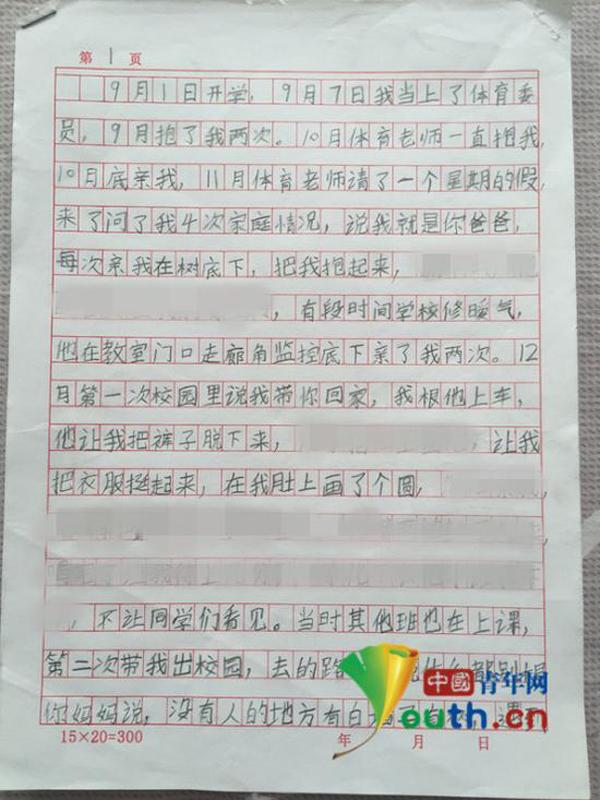 第 1 页
9月1日开学，9月7日我当上了体育委
员，9月抱了我两次。10月体育老师一直抱我，
10月底亲我，11月体育老师请了一个星期的假，
来了问了我4次家庭情况，说我就是你爸爸，
每次亲我在树底下，把我抱起来，
，有段时间学校修暖气，
他在教室门口走廊角监控底下亲了我两次。12
月第一次校园里说我带你回家，我根他上车，
他让我把裤子脱下来，
，让我
把衣服挺起来，在我肚上画了个圆，
，不让同学们看见。当时其他班也在上课，
第二次带我出校园，去的路
都别根
你妈妈说，没有人的地方有白
15×20=300
年 月 日
中國青年网
Youth.cn